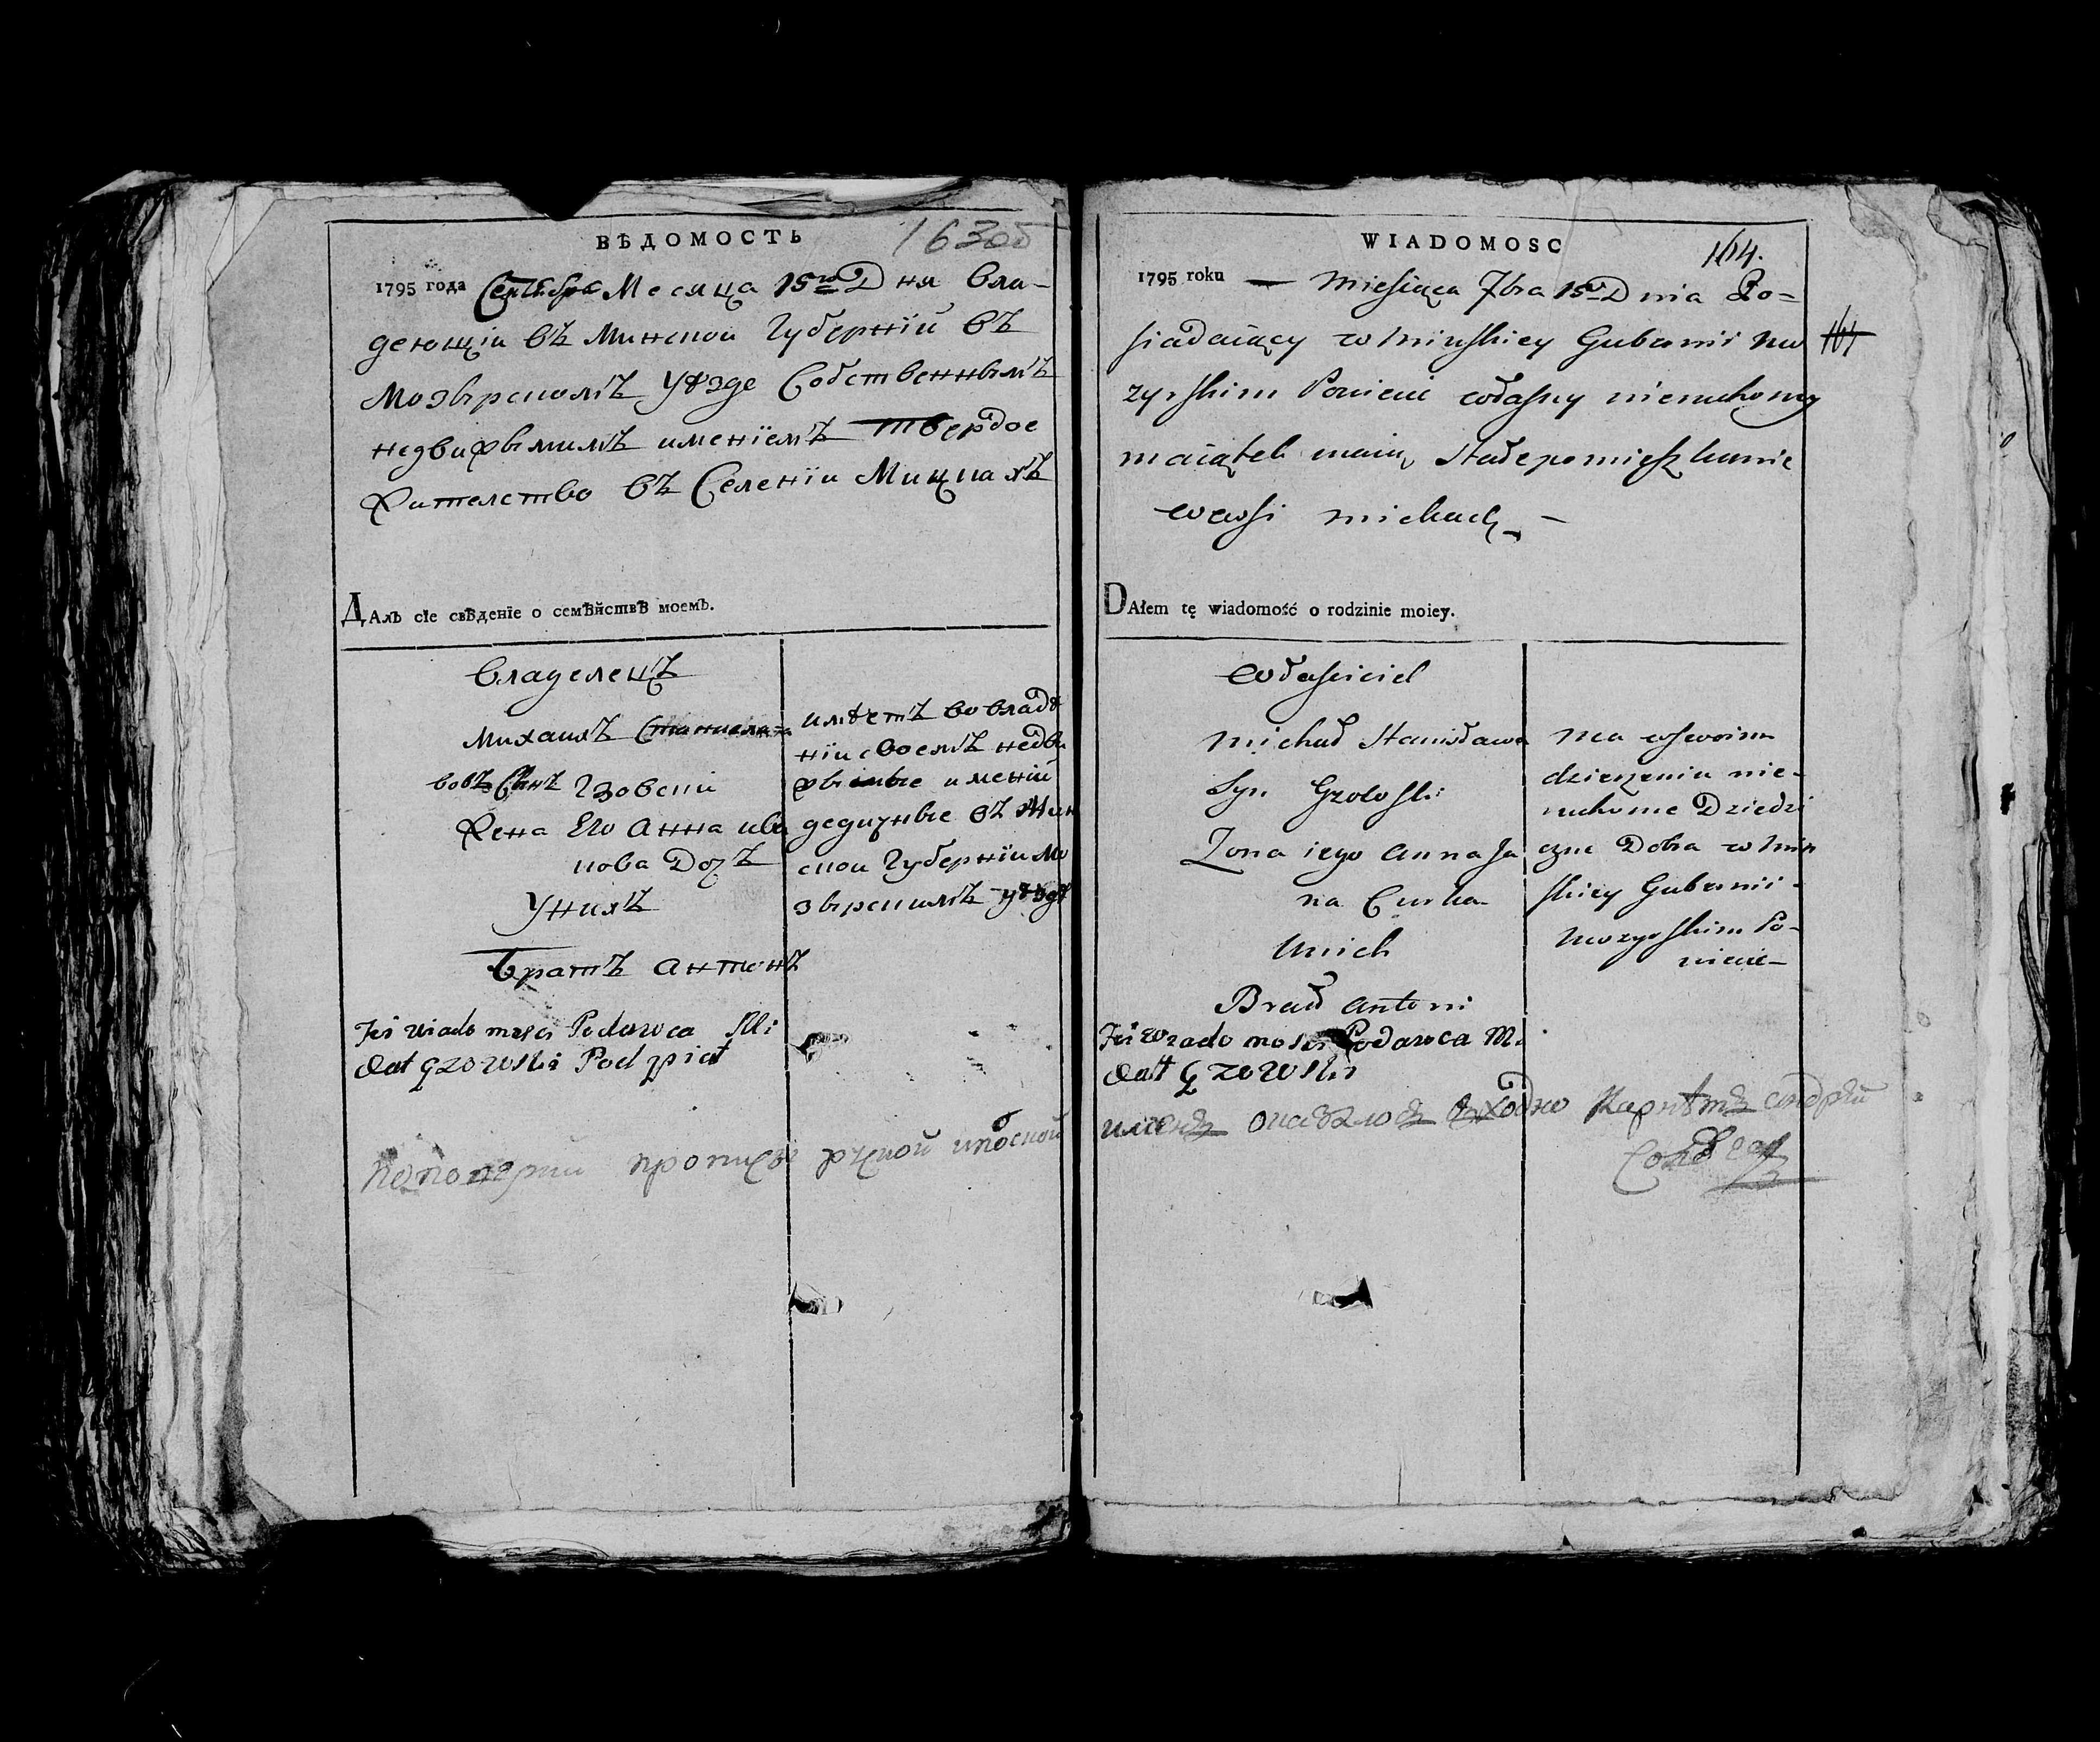 163об
ВѢДОМОСТЬ
1795 года Сентебра Месяца 15го Дня Вла-
деющiи вЪ Минскои Губернiй вЪ
МозырскомЪ Уѣзде СобственнымЪ
недвижымимЪ именiемЪ твердое
Жителство вЪ Селенiи МицкахЪ
ДАлъ сїе свѣденїе о семѣйствѣ моемъ.
ВладелецЪ
МихаилЪ Станисла
вовЪ СынЪ Гзовскiи
Жена Его Анна ива
нова ДочЪ
УникЪ
БратЪ АнтонЪ
имѣетЪ во владѣ
нiи своемЪ недви
жымые именiй
дедичные вЪ Мин
скои Губернiи Мо
зырскимЪ уѣздѣ
Tei Wiadomosci Podawca Mi
chał Gzowski Podpisał
WIADOMOSC
164.
1795 roku — Miesiąca 7bra 15o Dnia Po=
siadaiący w Minskiey Gubernii Mo
164
zyrskim Powiecie własny nieruchomy
maiątek maiąc Stałe pomieszkanie
wewsi Mickach —
Własciciel
Michał Stanisława
Syn Gzowski
Zona iego Anna Ja
na Curka
Unick
Brat Antoni
Ma wswoim
dzierzeniu nie-
ruchome Dziedzi
czne Dobra w Min
skiey Gubernii
Mozyrskim Po-
wiecie
Tei Wiadomosci Podawca Mi
chał Gzowski